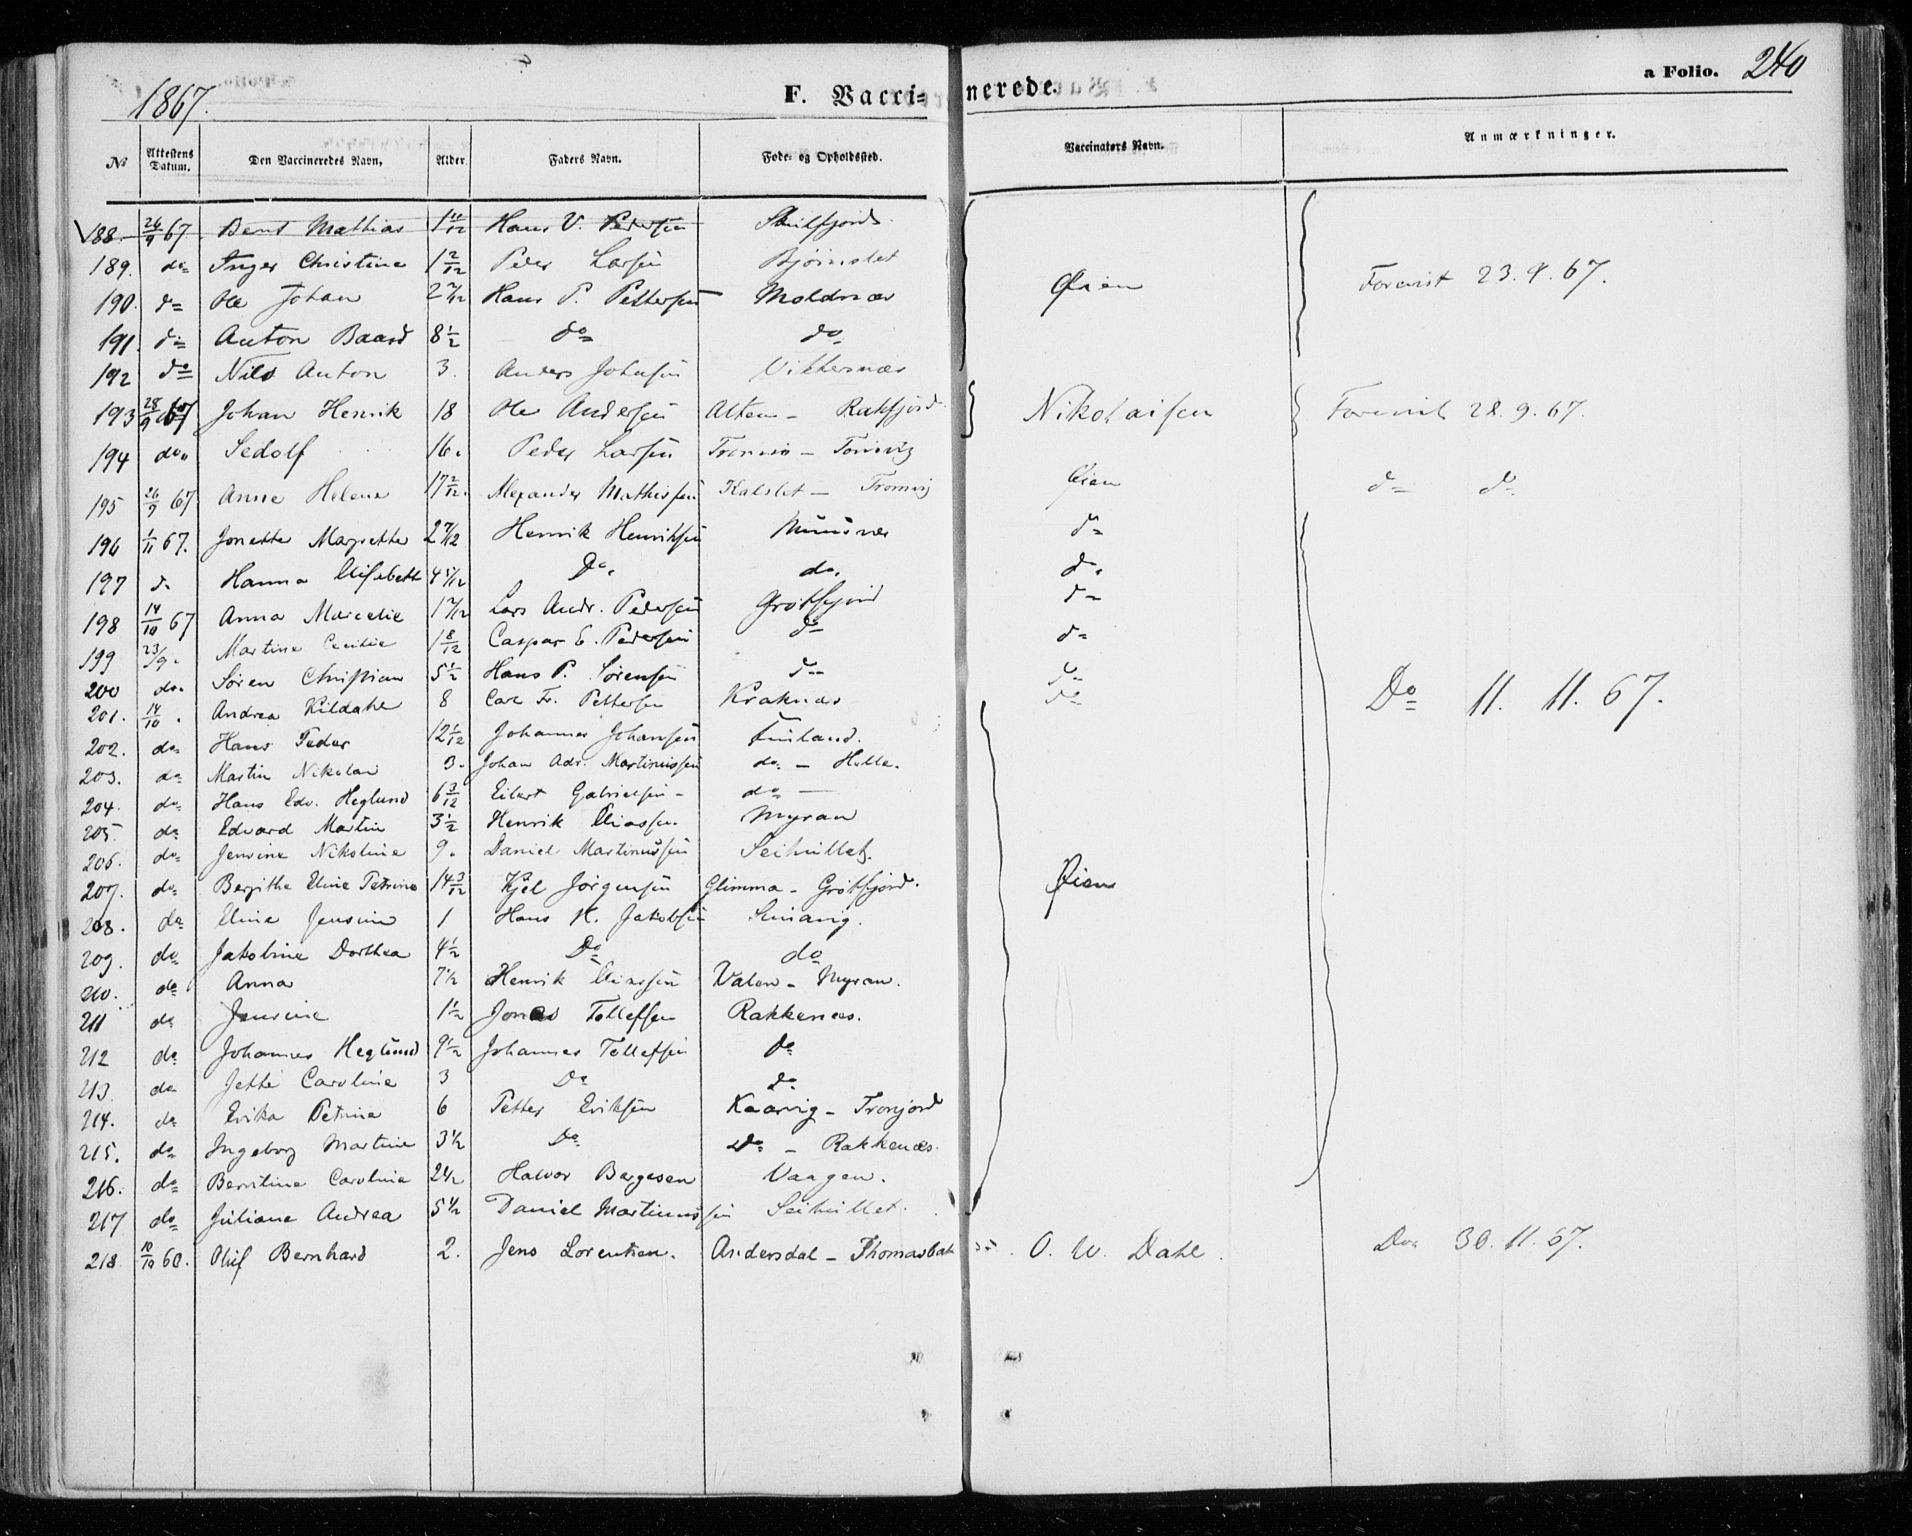 1867.
F. Vacci-nerede.
a Folio. 240
No Attestens Datum. Den Vaccineredes Navn, Alder Faders Navn. Føde- og Opholdssted. Vaccinators Navn. Anmærkninger.
188. 26/9 67. Bernt Mathias 1 11/12 Hans V. Pedersen
189. do Inger Christine 1 2/12 Peder Larsen Bjørnslet
190. do Ole Johan 2 7/12 Hans P. Pettersen Moldnæs Øien Forevist 23.9.67.
191. do Anton Baard 8 1/2 do do
192 do Nils Anton 3. Anders Johnsen Vikkernæs
193 28/9 67 Johan Henrik 18 Ole Andersen Alten - Rakfjord Nikolaisen Forevist 28.9.67.
194 do Sedolf 16. Peder Larsen Tromsø - Tonsvig
195 26/9 67 Anne Helene 17 2/12. Alexander Mathisen Kalslet - Tromvig Øien do do
196 1/11 67. Jonette Margrethe 2 7/12 Henrik Henriksen do
197 do Hanna Elisabeth 4 5/12 Do. do. do.
198 14/10 67 Anna Marcelie 1 7/12 Lars Andr. Pedersen Grøtfjord do
199 23/9 Martine Cecilie 1 8/12 Caspar E. Pedersen do do
200 do. Søren Christian 5 1/2 Hans P. Sørensen do do
201. 14/10 . Andrea Kildahl 8 Carl Fr. Pettersen Kraknæs do Do 11. 11. 67.
202. do Hans Peder 12 1/12 Johannes Johansen Finland.
203. do Martin Nikolai 3. Johan Adr. Martinussen do. - Hella.
204. do Hans Edv. Heglund 6 3/12 Eilert Gabrielsen - do -
205. do Edvard Martin 3 1/2 Henrik Eliassen Myran
206. do Jensine Nikoline 9. Daniel Martinussen
207. do Bergithe Eline Petrine 14 3/12 Kjel Jørgensen Glimma - Grøtfjord. Øien
208. do Eline Jensine 1 Hans K. Jakobsen
209. do Jakobine Dorthea 4 1/2 Do do
210. do Anna 7 1/2 Henrik Eliassen Valen - Myran.
211 do Jensine 1 1/2 Jonas Tollefsen Rakkenæs.
212 do Johannes Heglund 9 1/2 Johannes Tollefsen do
213. do Jette Caroline 3 Do do
214. do Erika Petrine 6 Petter Eriksen Kaarvig - Tronjord
215. do Ingeborg Martine 3 1/2 Do Do - Rakkenæs.
216. do Berntine Caroline 2 1/2 Halvor Bergesen Vaagen.
217 do Juliane Andrea 5 1/2 Daniel Martinussen
218. 10/10 60. Oluf Bernhard 2. Jens Lorentsen. Andersdal - Thomasbak O. W. Dahl. Do 30.11.67.